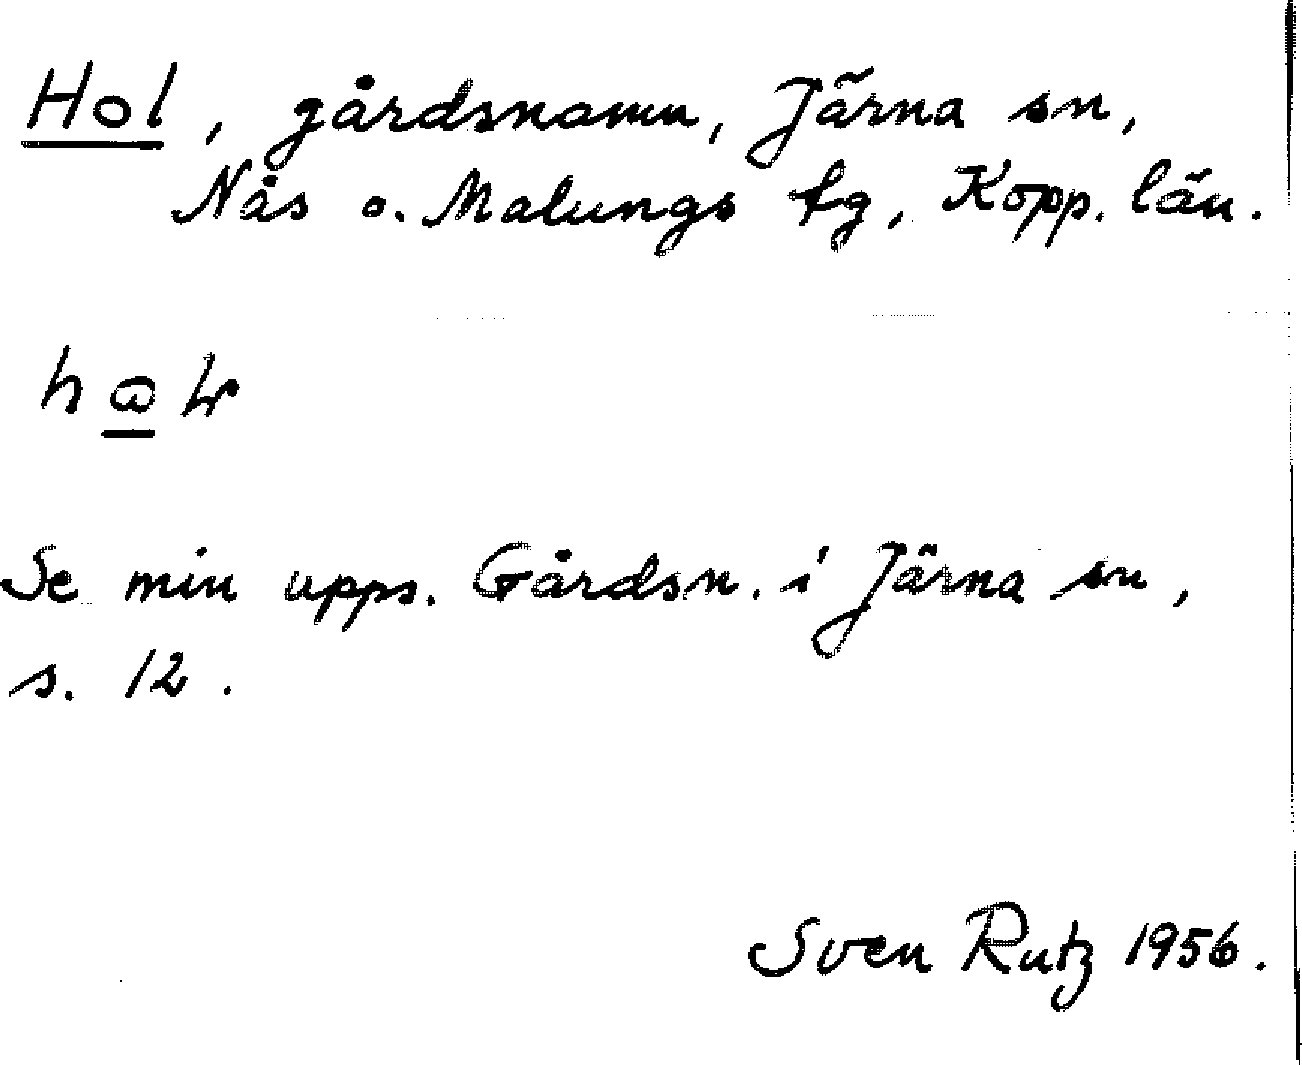 Hol, gårdsnamn, Järna sn,
Nås o. Malungs fg, Kopp. län.
Se min upps. Gårdsn. i Järna sn,
s. 12.
Sven Rutz 1956.